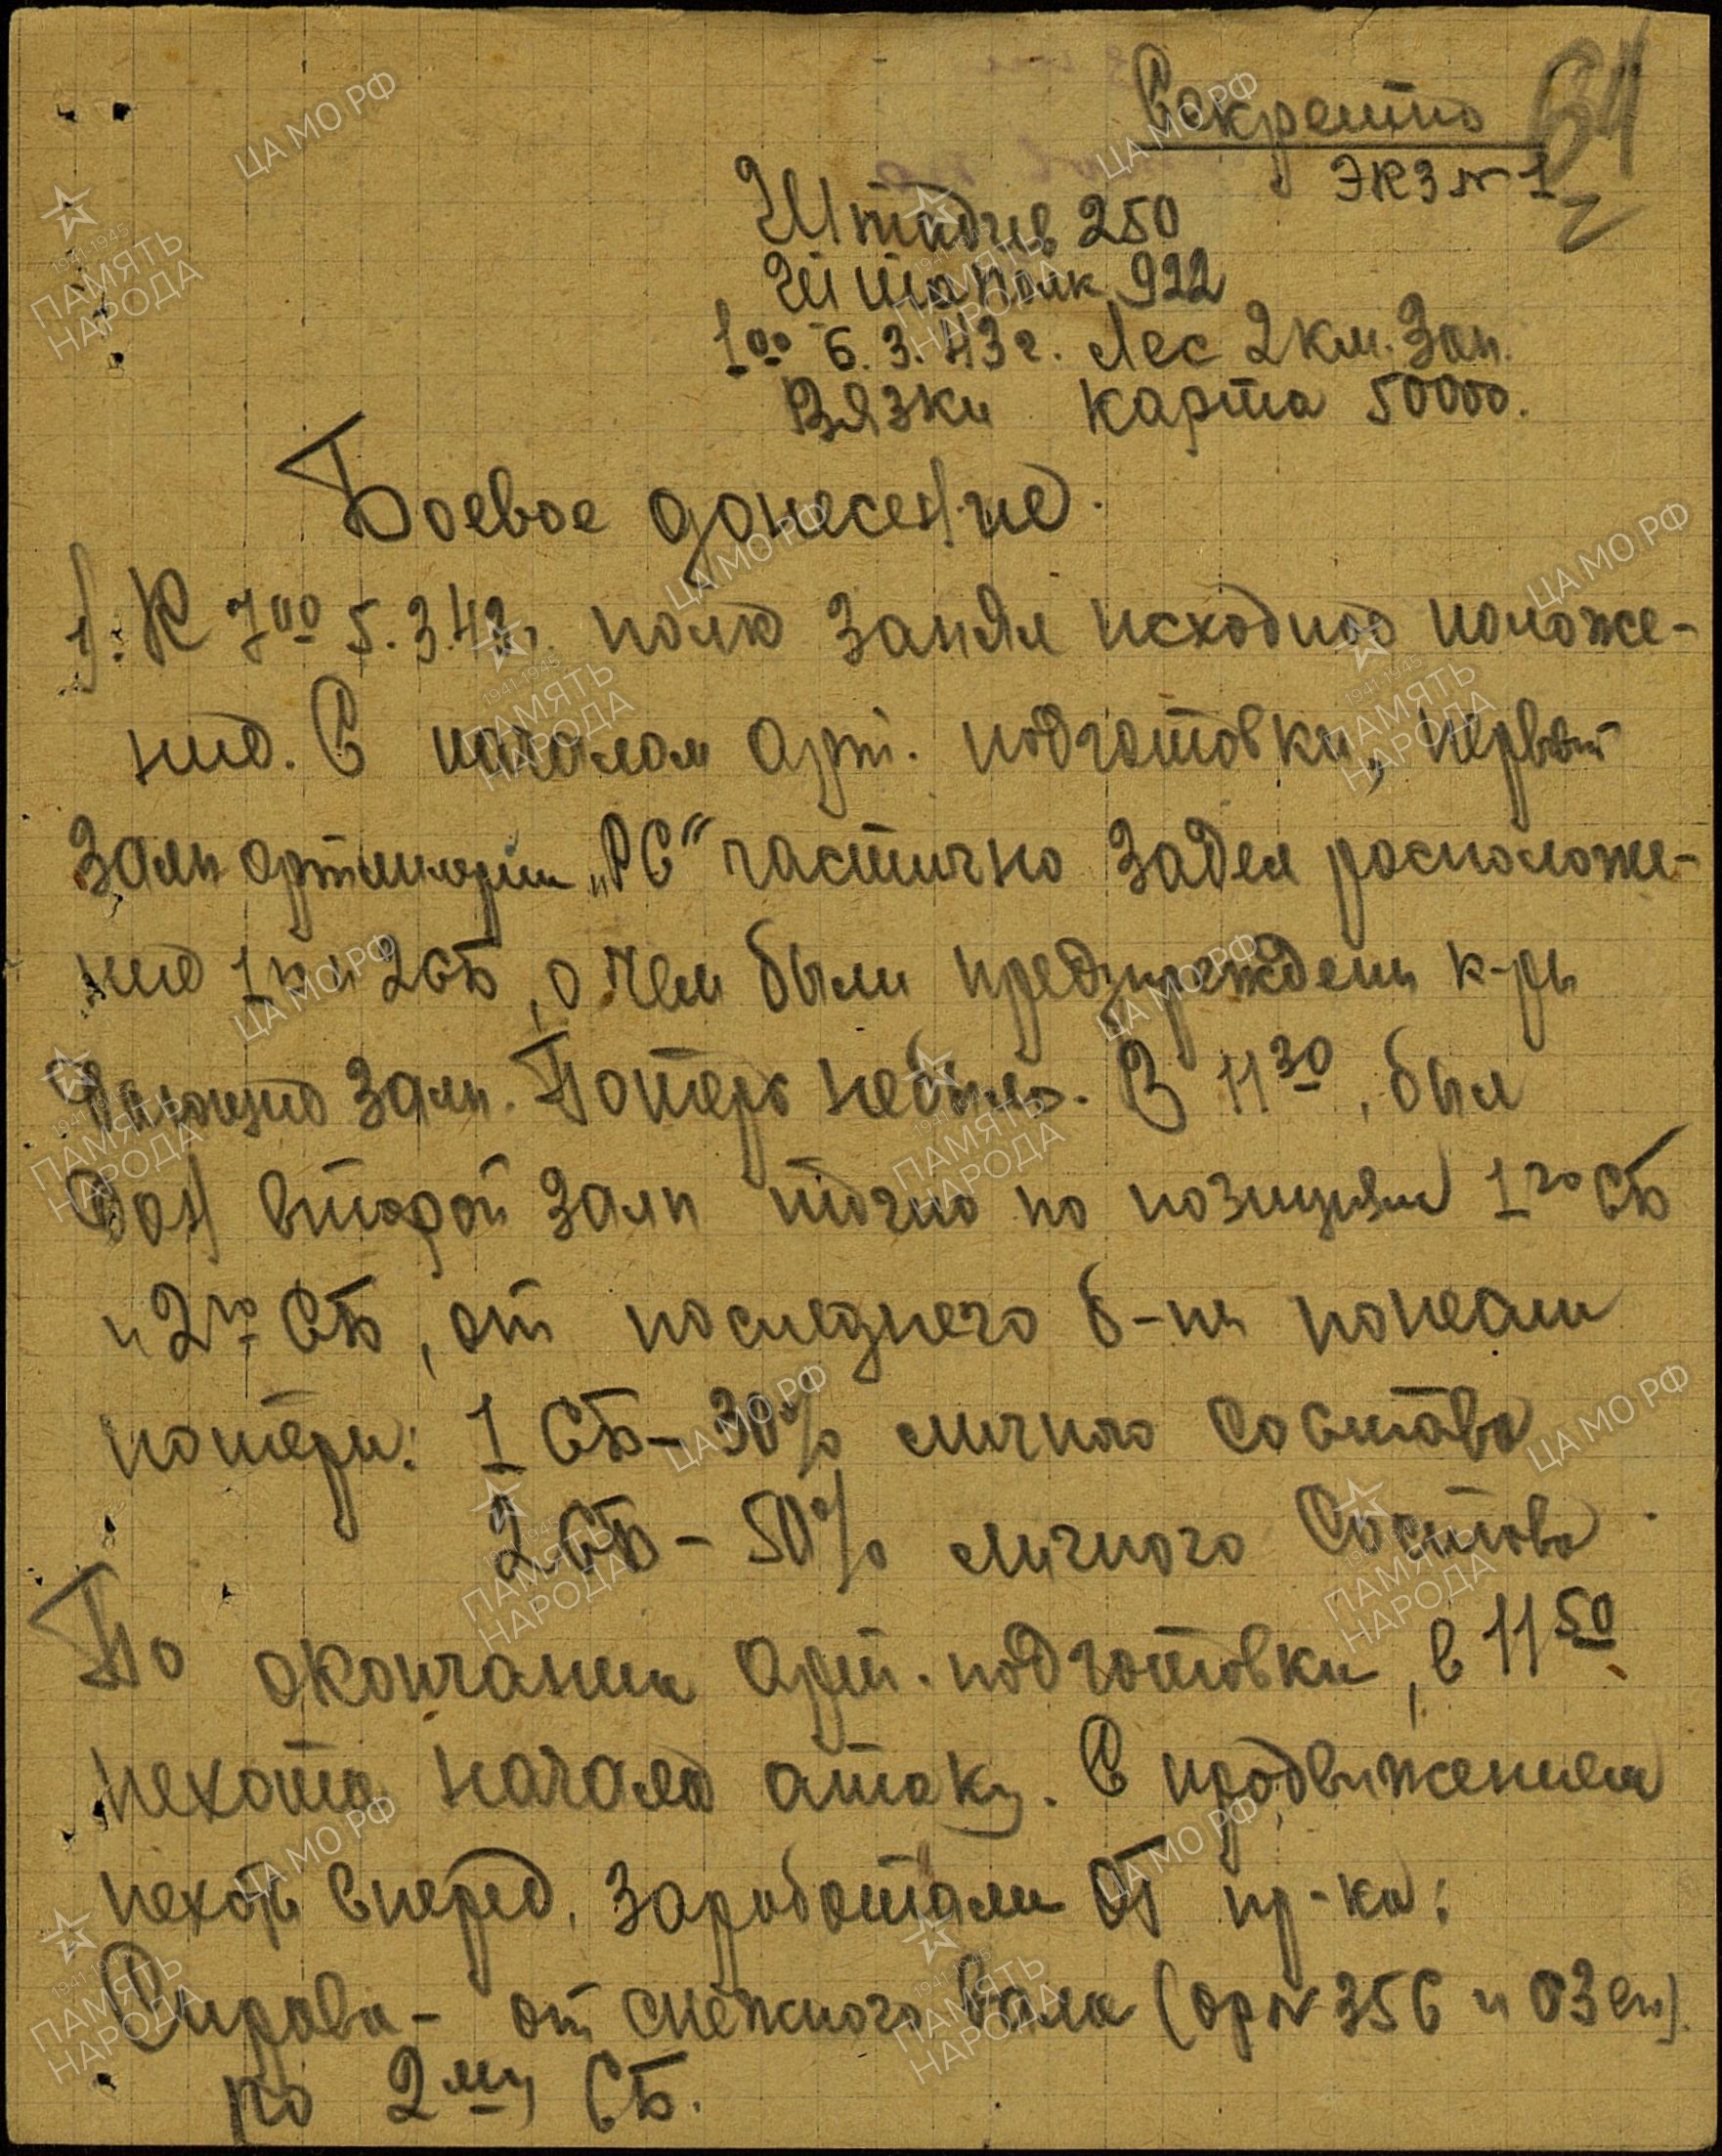 Секретно
64
экз № 1
Штадив 250
Штаполк 922
1⁰⁰ 6.3.43г. Лес 2 км. Зап.
Вязки карта 50000.
Боевое донесение.
1). К 7⁰⁰ 5.3.43г. полк занял исходное положе-
ние. С началом арт. подготовки, первый
залп артиллерии „РС" частично задел расположе-
ние 1 и 2 СБ, о чем были предупреждены к-ры
дающие залп. Потерь небыло. В 11³⁰, был
дан второй залп точно по позициям 1го СБ
и 2го СБ, от последнего б-ны понесли
потери: 1 СБ – 30% личного состава
2 СБ – 50% личного состава
По окончании арт. подготовки, в 11⁵⁰
пехота начала атаку. С продвижением
пехоты вперед, заработали ОТ пр-ка:
Справа – от снежного вала (ор № 356 и 03 )
по 2му СБ.
ЦА МО РФ
1941-1945
ПАМЯТЬ
НАРОДА